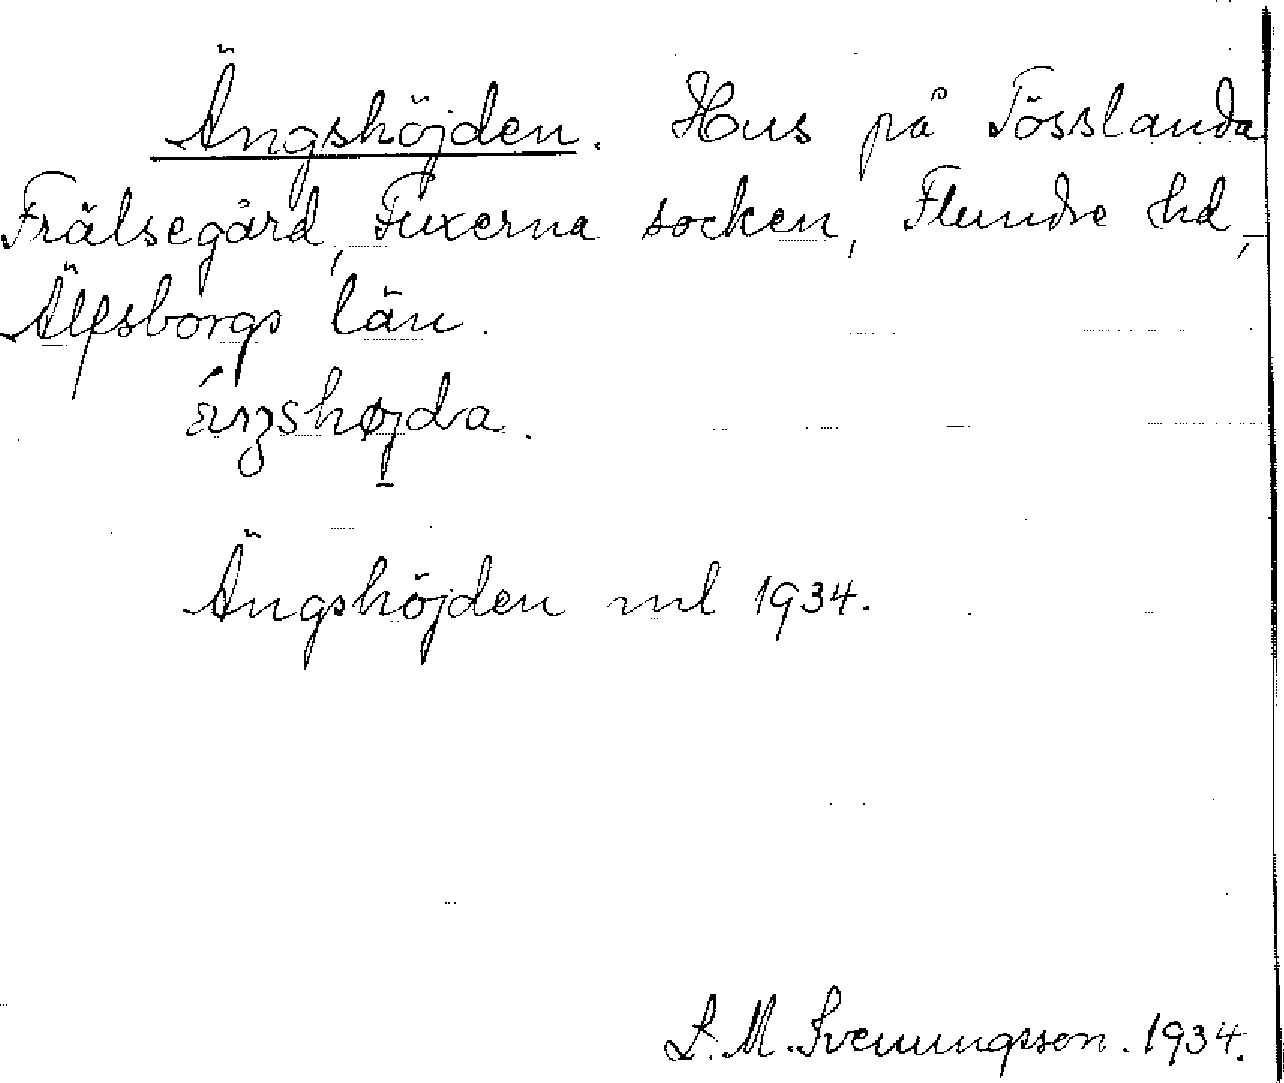 Ängshöjden. Hus på Tösslanda
Frälsegård, Fuxerna socken, Flundre hd,
Älfsborgs län.
ml 1934.
Ängshöjden ml 1934.
L. M. Svenungsson. 1934.